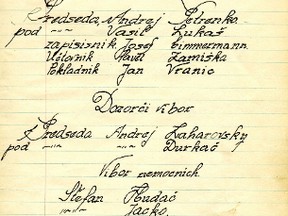 Predseda Andrej Petrenka
pod -"- Vasil Lukaš
zapisisnik Josef Cimmermann
Učtovnik Pavel Zamiška
Pokladnik Jan Vranic
Dozorči vibor
Predseda Andrej Zaharovsky
pod -"- -"- Durkač
Vibor nemocnich
Štefan Hudáč
-"- Jacko